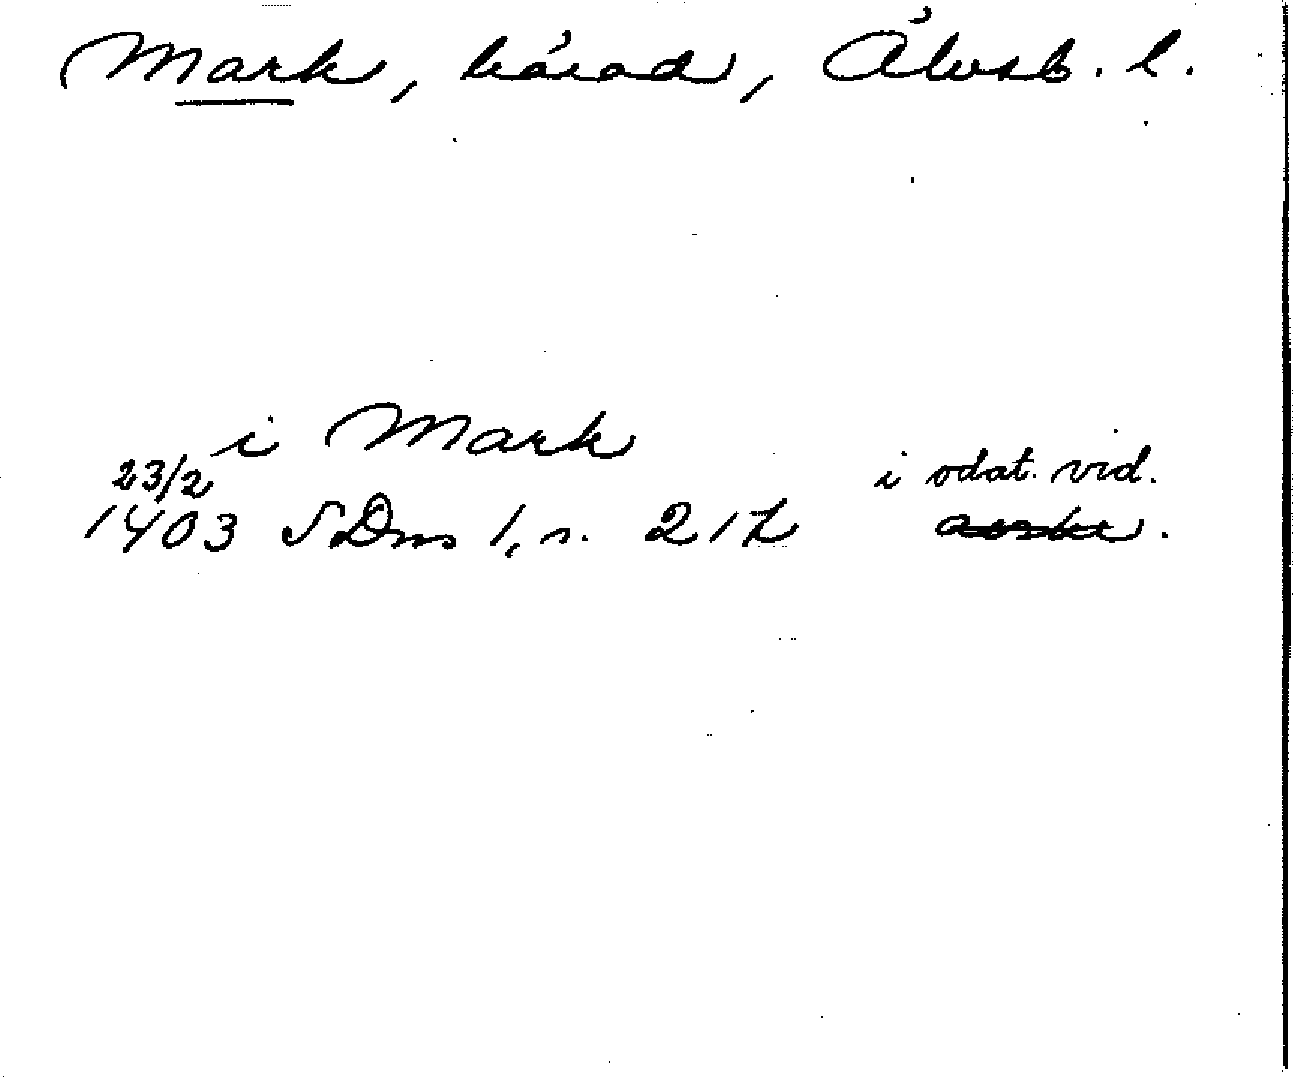 Mark, härad, Älvsb. l.
i Mark
23/2 i odat. vid.
1403 SDns 1, s. 217